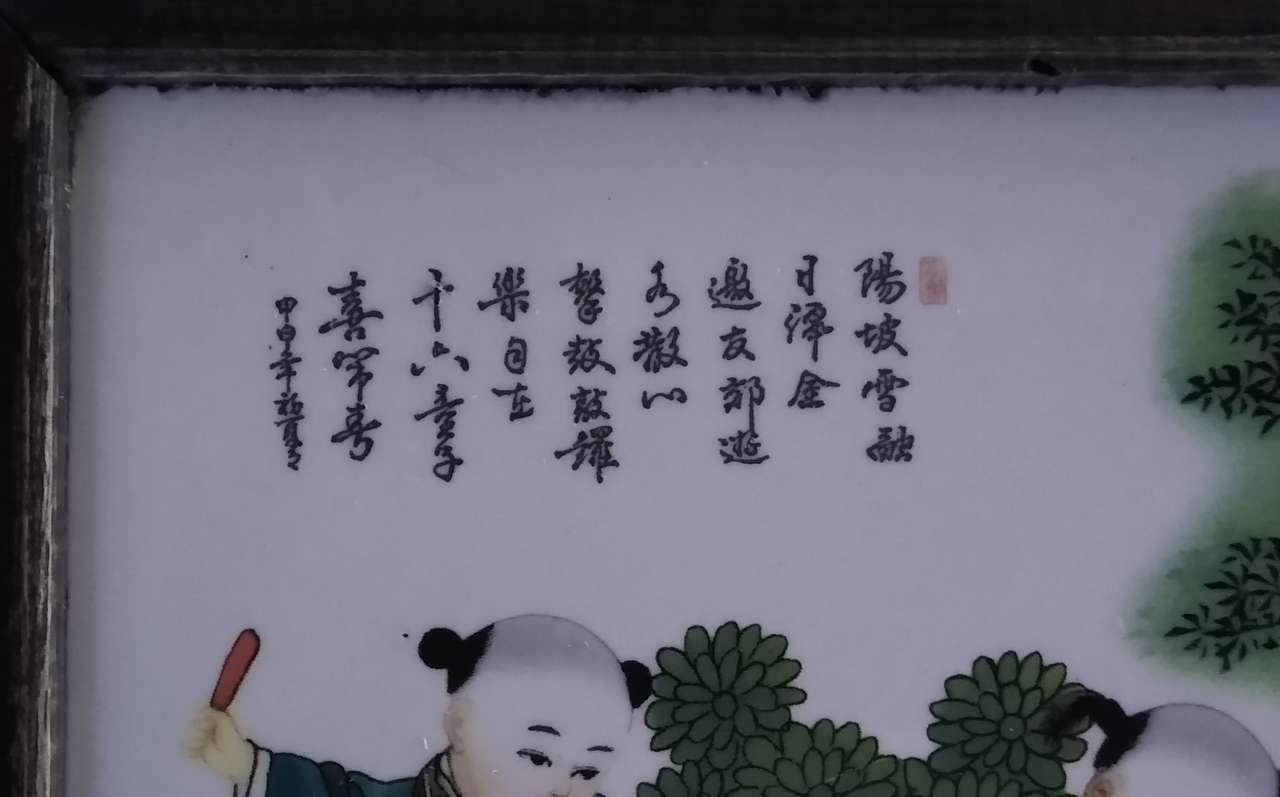 陽坡雪融
日澤金
邀友郊遊
為散心
擊鼓敲鑼
樂自在
十六童子
喜鬧春
甲申年